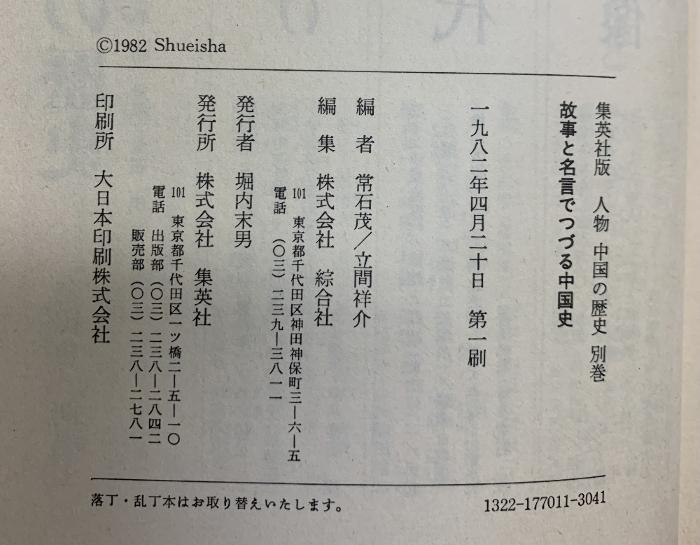 ©1982 Shueisha
集英社版 人物 中国の歴史 別巻
故事と名言でつづる中国史
一九八二年四月二十日 第一刷
編者 常石茂/立間祥介
編集 株式会社 綜合社
101 東京都千代田区神田神保町三―六―五
電話 (〇三)二三九―三八一一
発行者 堀内末男
発行所 株式会社 集英社
101 東京都千代田区一ツ橋二―五―一〇
電話 出版部(〇三)二三八―二八四二
販売部(〇三)二三八―二七八一
印刷所 大日本印刷株式会社
落丁・乱丁本はお取り替えいたします。
1322-177011-3041